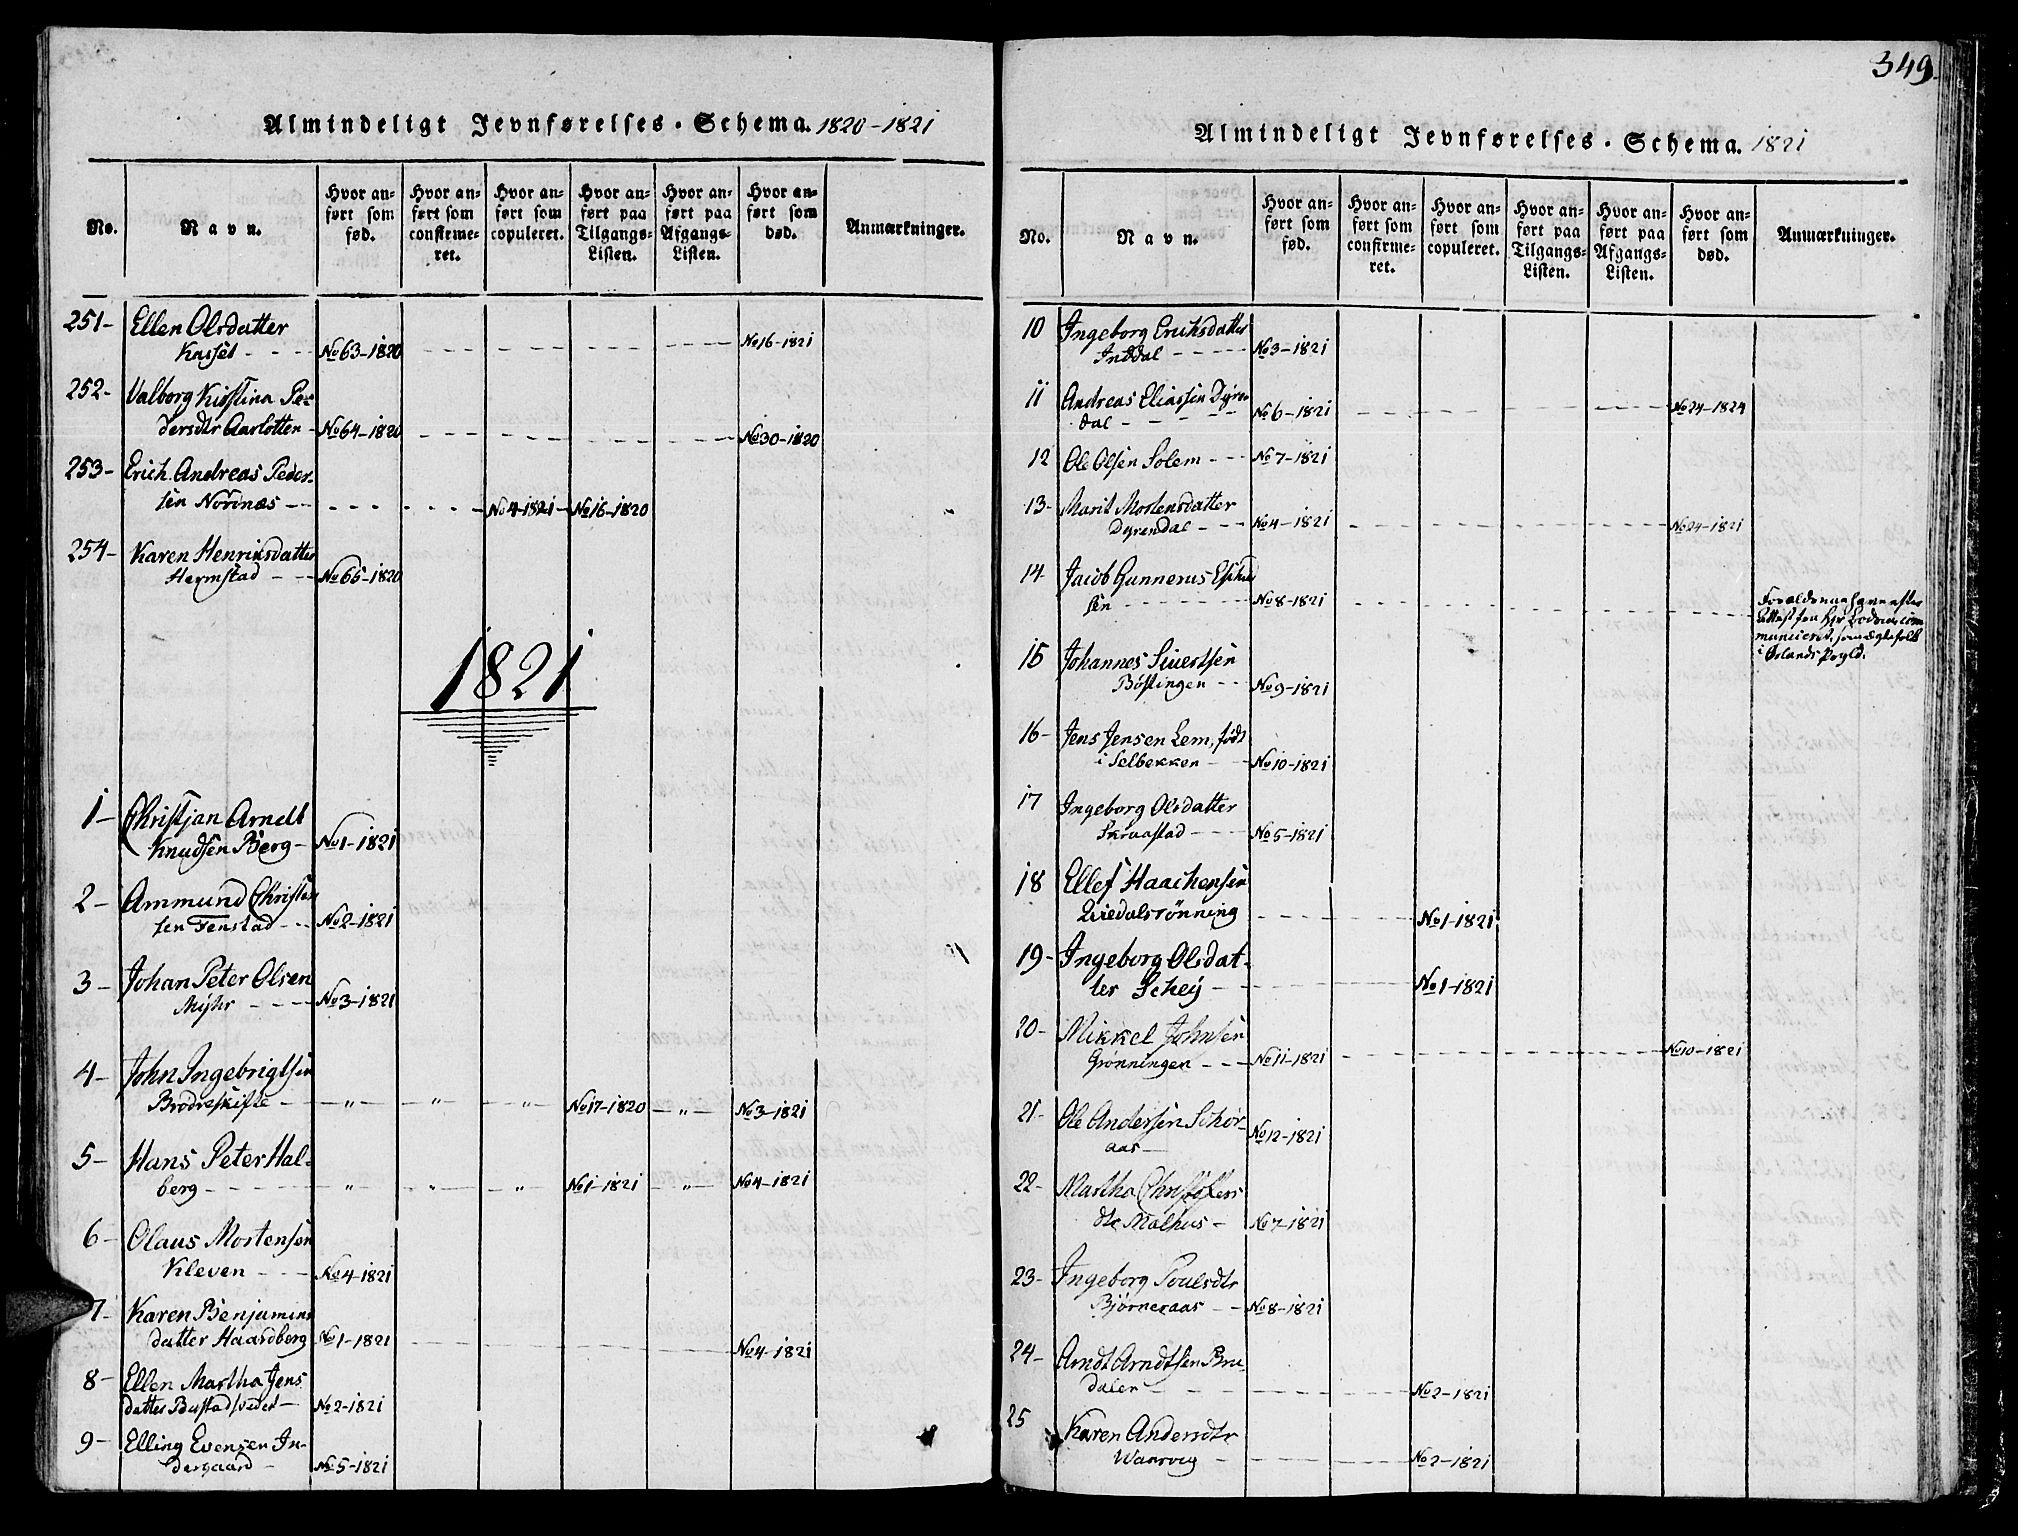 Almindeligt Jevnførelses-Schema. 1820-1821
No.
Navn.
Hvor anført som fød.
Hvor anført som confirmeret.
Hvor anført som copuleret.
Hvor anført paa Tilgangs-Listen.
Hvor anført paa Afgangs-Listen.
Hvor anført som død.
Anmærkninger.
251- Ellen Olsdatter
No 63-1820 No 16-1821
252- Valborg Kirstina Pe-
dersdtr Aarlotten - No 64-1820 No 30-1820
253- Erich Andreas Peder-
sen Nordnæs No 4-1821 No 16-1820
254- Karen Henriksdatter
Hermstad No 65-1820
1821
1- Christjan Arndt
Knudsen Berg - No 1-1821
2- Ammund Christen
sen Fenstad No 2-1821
3- Johan Peter Olsen
Myhr No 3-1821
4- John Ingebrigtsen
Brødreskifte - " " " No 17-1820 " No 3-1821
5- Hans Peter Hal-
berg - " " " No 1-1821 " No 4-1821
6- Olaus Mortensen
Kleven No 4-1821
7- Karen Benjamins
datter Haardberg No 1-1821 No 4-1821
8- Ellen Martha Jens
datter No 2-1821
9- Elling Evensen In-
dergaard No 5-1821
349.
Almindeligt Jevnførelses-Schema. 1821
No.
Navn.
Hvor anført som fød.
Hvor anført som confirmeret.
Hvor anført som copuleret.
Hvor anført paa Tilgangs-Listen.
Hvor anført paa Afgangs-Listen.
Hvor anført som død.
Anmærkninger.
10 Ingeborg Eriksdatter
Inddal No 3-1821
11 Andreas Eliassen Dyren
dal No 6-1821 No 24-1824
12 Ole Olsen Solem No 7-1821
13- Marit Mortensdatter
Dyrendal No 4-1821 No 24-1821
14- Jacob Gunnerus
sen No 8-1821
i Ørlands
15 Johannes Sivertsen
Bøstingen No 9-1821
16- Jens Jensen Lem, født
i Selbekken No 10-1821
17 Ingeborg Olsdatter
Skraastad No 5-1821
18 Ellef Haachensen
No 1-1821
19- Ingeborg Olsdat-
ter Schey No 1-1821
20- Mikkel Johnsen
Grønningen No 11-1821 No 10-1821
21- Ole Andersen Schør-
aas No 12-1821
22- Martha Christofers
dtr Malhus - No 7-1821
23- Ingeborg Poulsdtr
Bjørneraas No 8-1821
24- Arndt Arndtsen Bru-
daler No 2-1821
25 Karen Andersdtr
No 2-1821